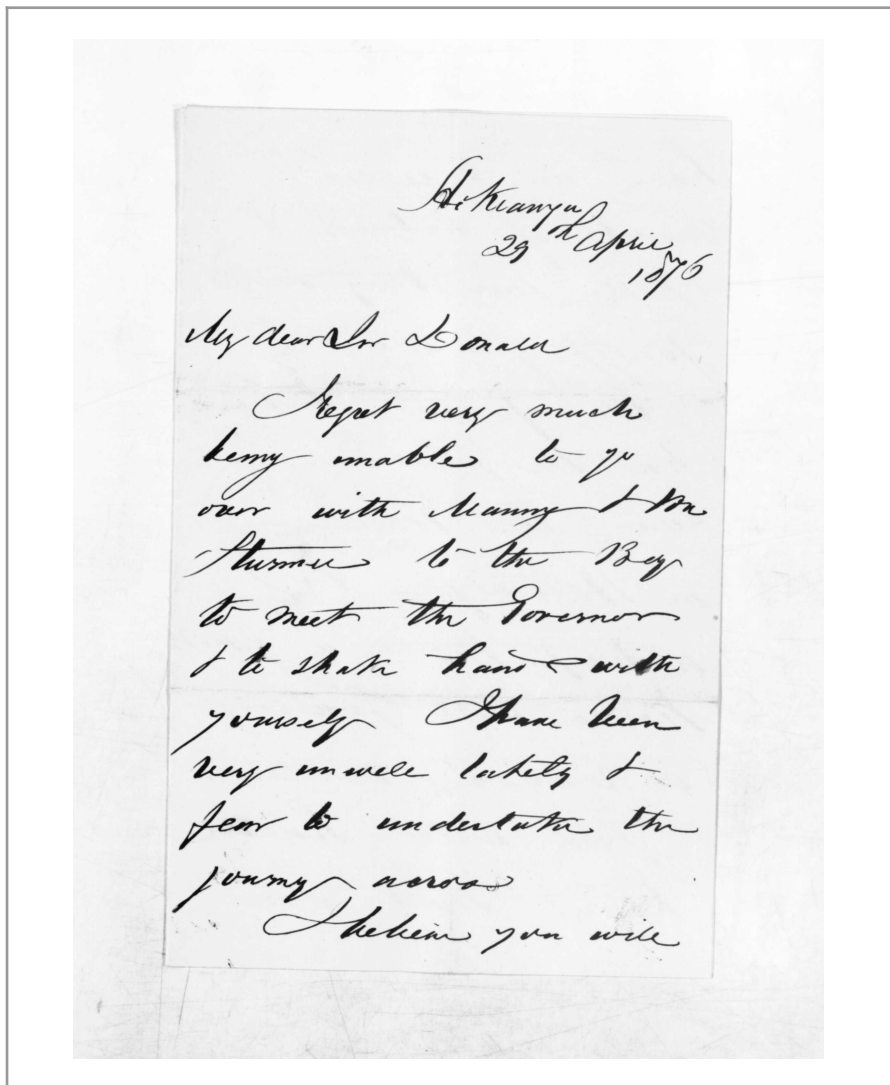 Hokianga
29th April
1876
My dear Sir Donald
I regret very much
being unable to go
over with Maning & Mr
Sturmer to the Bay
to meet the Governor
& to shake hands with
yourself I have been
very unwell lately &
fear to undertake the
journey across
I believe you will